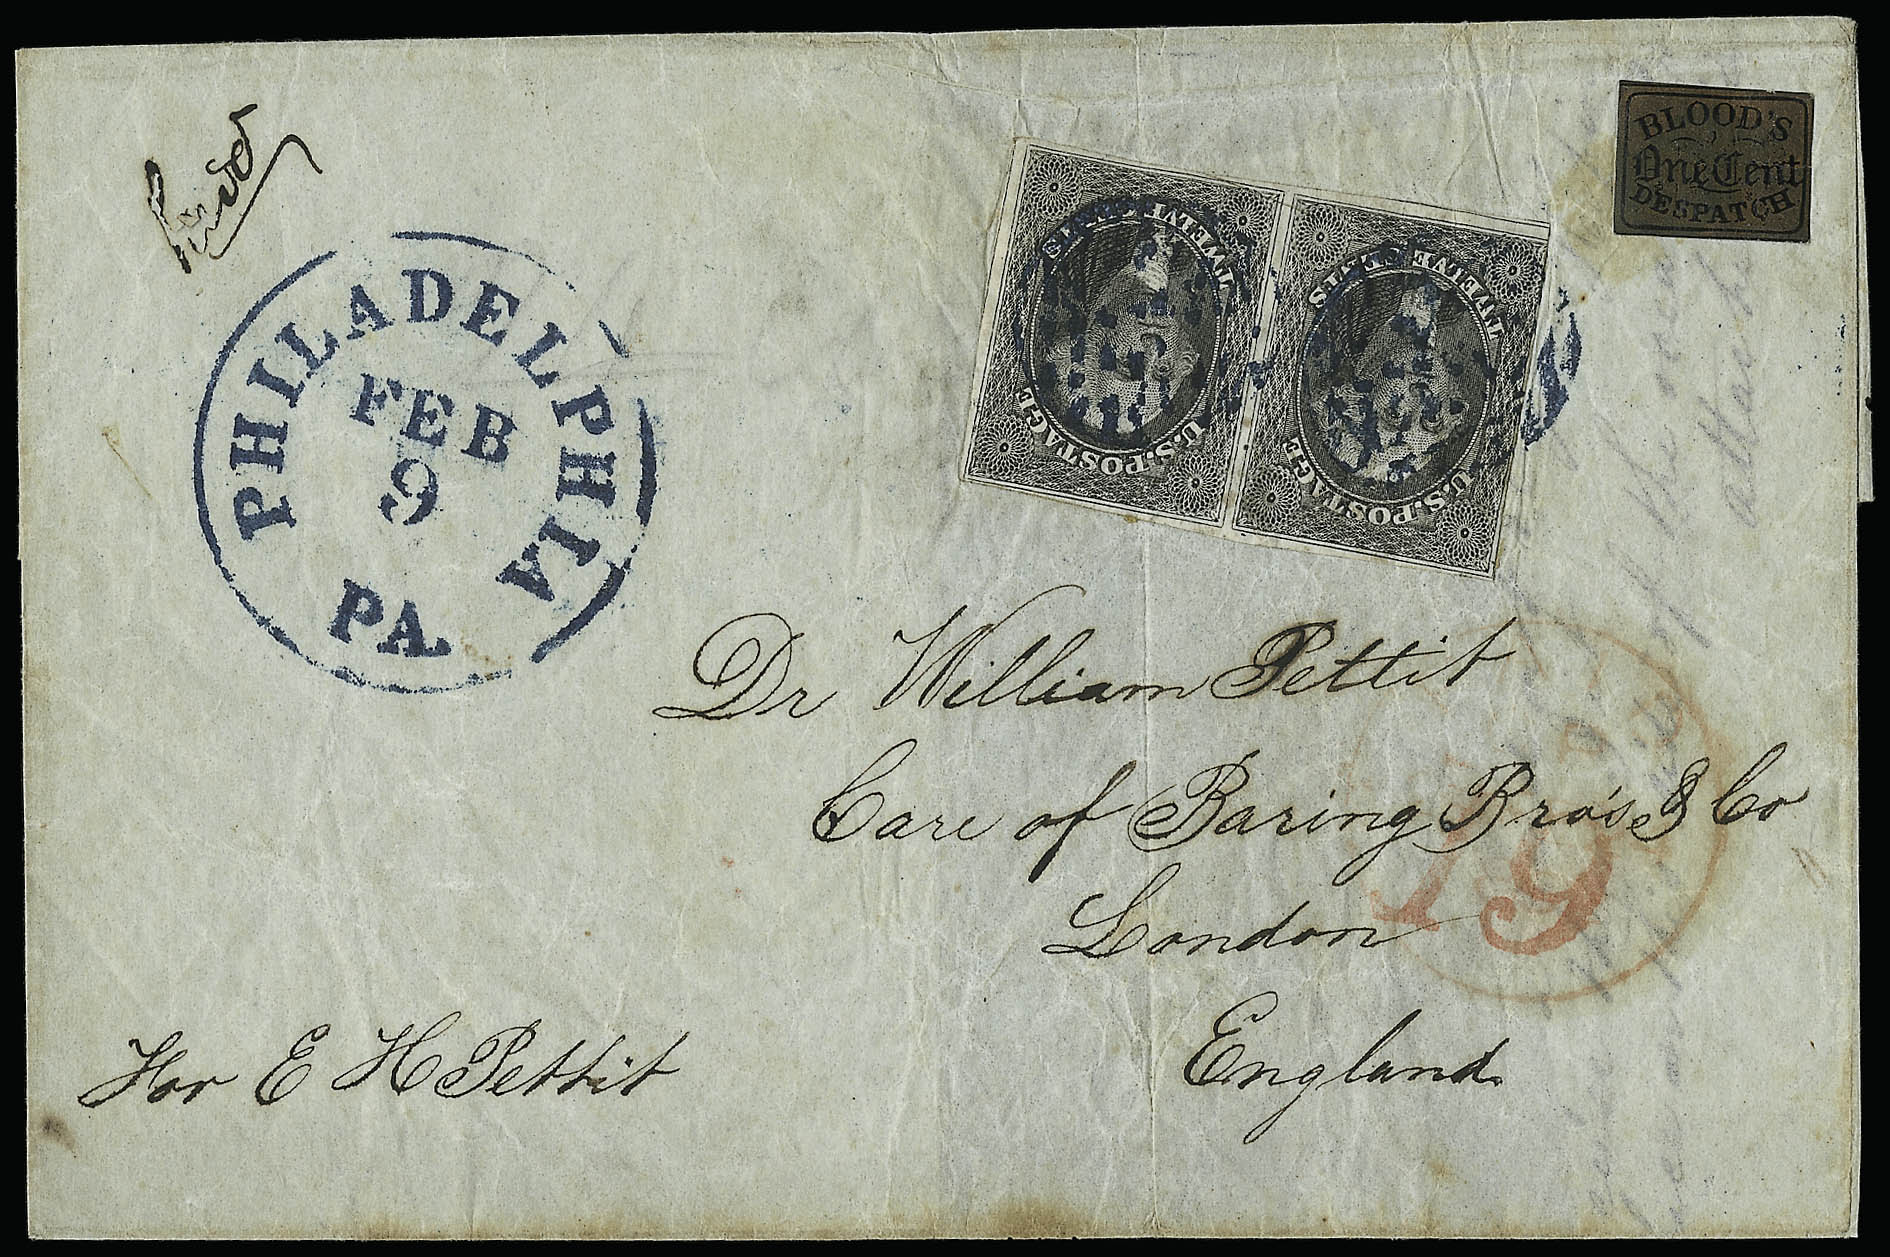 BLOOD'S
One Cent
DESPATCH
TWELVE CENTS
U.S. POSTAGE
TWELVE CENTS
U.S. POSTAGE
PHILADELPHIA
FEB
9
PA.
Dr William Pettit
Care of Baring Bro's & Co
19
London
England
For E H Pettit